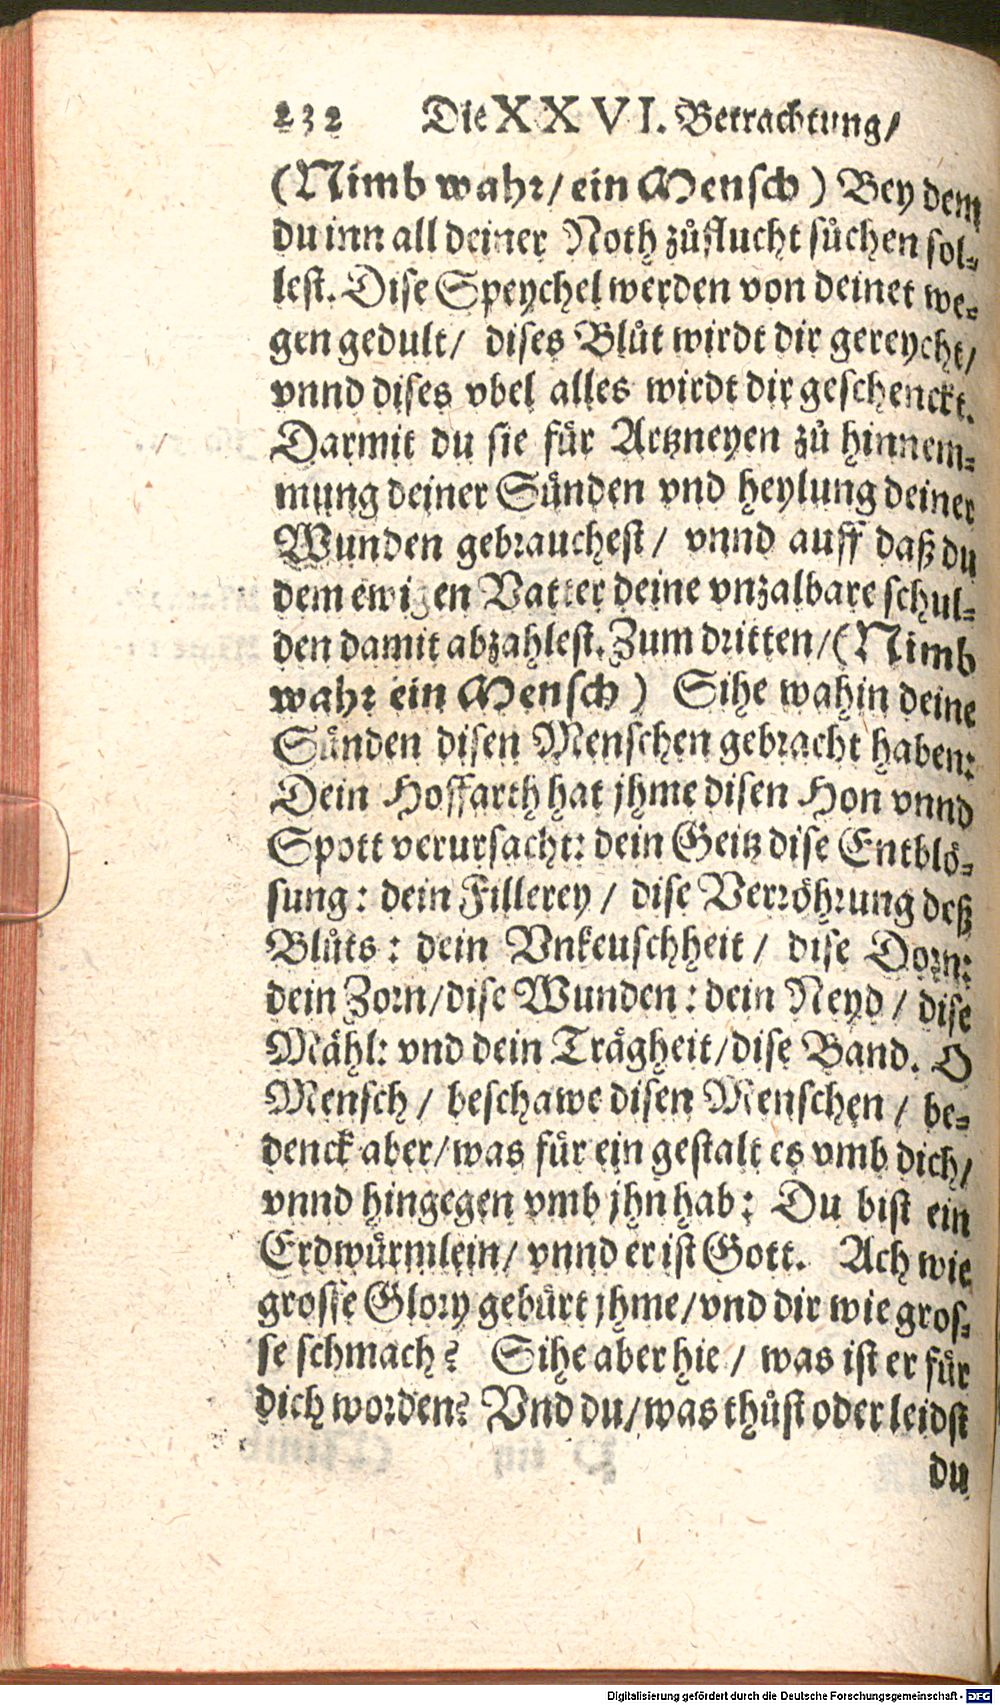 232 Die XXVI. Betrachtung/
(Nimb wahr/ ein Mensch) Bey dem
du inn all deiner Noth zůflucht sůchen sol-
lest. Dise Speychel werden von deinet we-
gen gedult/ dises Blůt wirdt dir gereycht/
vnnd dises vbel alles wirdt dir geschenckt.
Darmit du sie für Artzneyen zů hinnem-
mung deiner Sünden vnd heylung deiner
Wunden gebrauchest/ vnnd auff daß du
dem ewigen Vatter deine vnzalbare schul-
den damit abzahlest. Zum dritten/ (Nimb
wahr ein Mensch) Sihe wahin deine
Sünden disen Menschen gebracht haben:
Dein Hoffarth hat jhme disen Hon vnnd
Spott verursacht: dein Geitz dise Entblö-
sung: dein Fillerey/ dise Verröhrung deß
Blůts: dein Vnkeuschheit/ dise Dorn:
dein Zorn/ dise Wunden: dein Neyd/ dise
Mähl: vnd dein Trägheit/ dise Band. O
Mensch/ beschawe disen Menschen/ be-
denck aber/ was für ein gestalt es vmb dich/
vnnd hingegen vmb jhn hab: Du bist ein
Erdwürmlein/ vnnd er ist Gott. Ach wie
grosse Glory gebürt jhme/ vnd dir wie gros-
se schmach? Sihe aber hie/ was ist er für
dich worden? Vnd du/ was thůst oder leidst
du
Digitalisierung gefördert durch die Deutsche Forschungsgemeinschaft - DFG